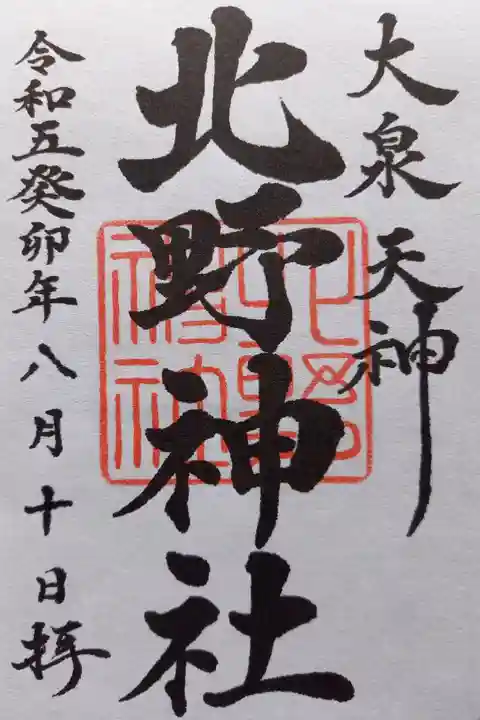 大泉天神
北野神社
北野神社
令和五癸卯年八月十日拝